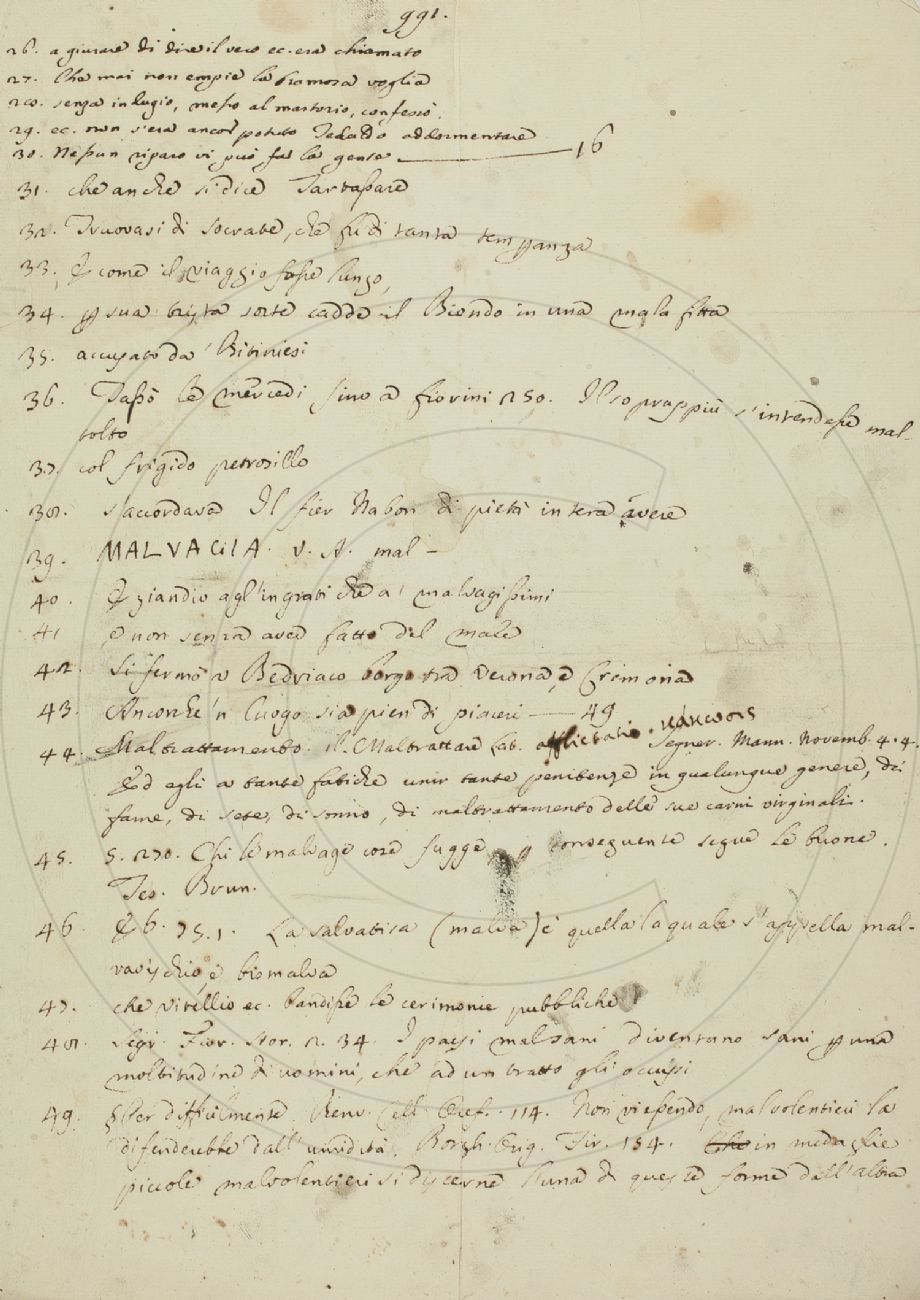 991.
26. a giurare di dire il vero ec. era chiamato
27. Che mai non empie la bramosa voglia
28. senza indugio, messo al martorio, confessò.
29. ec. non s'era ancor potuto Tedaldo addormentare
30. Nessun riparo vi può far la gente ——— 16
31. che anche si dice Tartassare
32. Truovasi di Socrate, che fu di tanta temperanza
33. E come il viaggio fosse lungo,
34. p sua trista sorte cadde il Biondo in una mala fitta
35. accusato da' Bitiniesi
36. Tassò le mercedi sino a fiorini 250. Il soprappiù s'intendesse mal-
tolto
37. col frigido petrosillo
38. s'accordava Il fier Nabor di pietà intera avere
39. MALVACIIA. V. A. mal —
40. Eziandio agl'ingrati che a' malvagissimi
41 e non senza aver fatto del male
42. Si fermò a Bedriaco borgo tra Verona, e Cremona
43. Ancorchè 'n luogo sia pien di piaceri —— 49
44. Maltrattamento. il Maltrattare Lat. afflictatio. κάκωσις Segner. Mann. Novemb. 4. 4.
Ed egli a tante fatiche unir tante penitenze in qualunque genere, di
fame, di sete, di sonno, di maltrattamento delle sue carni virginali.
45. 5. 270. Chi le malvage cose fugge, p conseguente segue le buone.
Tes. Brun.
46 E 6. 75. 1. La salvatica (malva) è quella la quale s'appella mal-
vavischio, e bismalva
47. che Vitellio ec. bandisse le cerimonie pubbliche
48. Segr. Fior. Stor. 2. 34. I paesi malsani diventano sani p una
moltitudine di uomini, che ad un tratto gli occupi
49. §Per difficilmente. Benv. Cell. Oref. 114. Non vi essendo, malvolentieri la
difenderebbe dall'umidità. Borgh. Orig. Fir. 154. in medaglie
piccole malvolentieri si discerne l'una di queste forme dall'altra